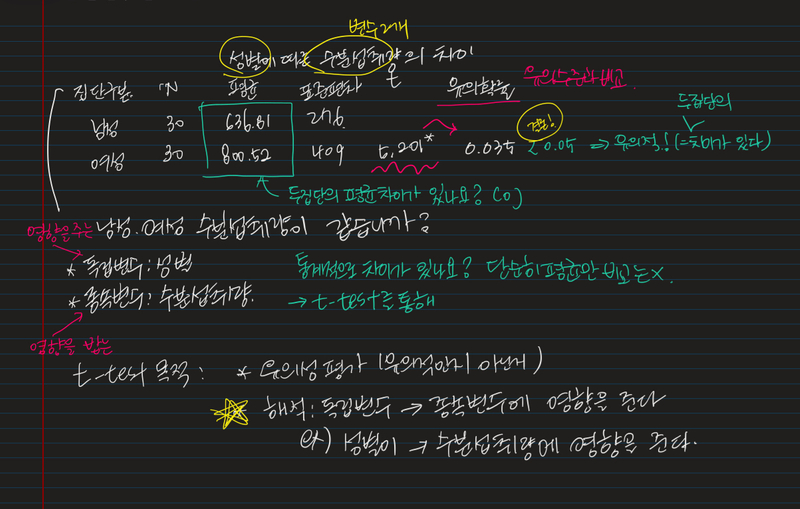 변수 2개
성별에 따른 수분섭취량의 차이
집단구분 N 평균 표준편차 t 유의확률 유의수준과 비교
남성 30 636.81 276
여성 30 800.52 409 5.201* 0.035 < 0.05 ⇒ 유의적! (=차이가 있다)
두집단의
두집단의 평균차이가 있나요? (o)
영향을 주는 남성.여성 수분섭취량이 같습니까?
* 독립변수 : 성별 통계적으로 차이가 있나요? 단순히 평균만 비교는 x.
* 종속변수 : 수분섭취량. → t-test를 통해
영향을 받는
t-test 목적 : * 유의성 평가 (유의적인지 아닌지)
해석 : 독립변수 → 종속변수에 영향을 준다
ex) 성별이 → 수분섭취량에 영향을 준다.